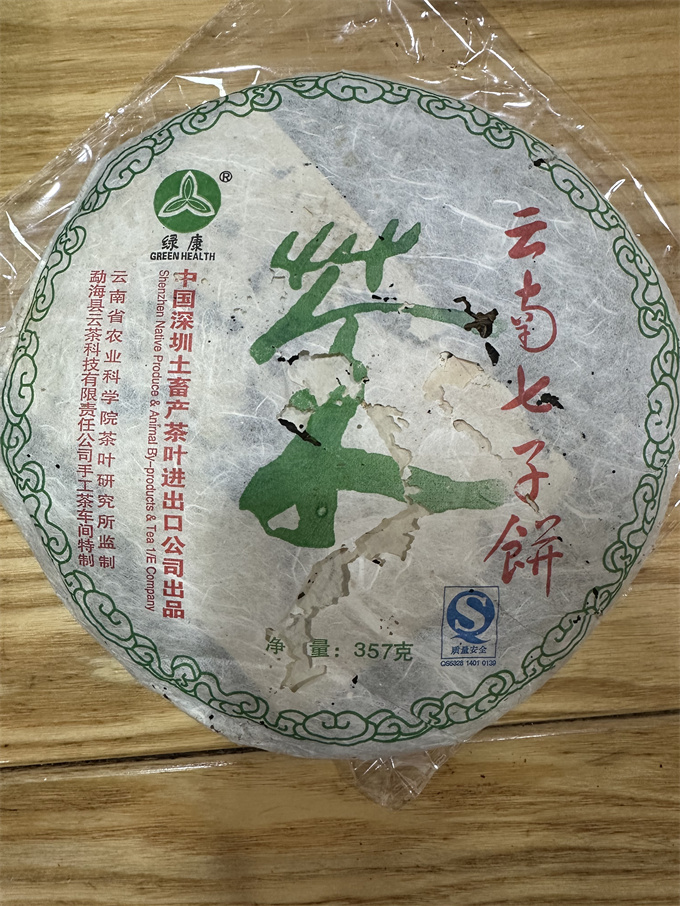 云南七子餅
茶
®
绿康
GREEN HEALTH
中国深圳土畜产茶叶进出口公司出品
Shenzhen Native Produce & Animal By-products & Tea 1/E Company
云南省农业科学院茶叶研究所监制
勐海县云茶科技有限责任公司手工茶车间特制
净 量：357克
质量安全
QS5328 1401 0139